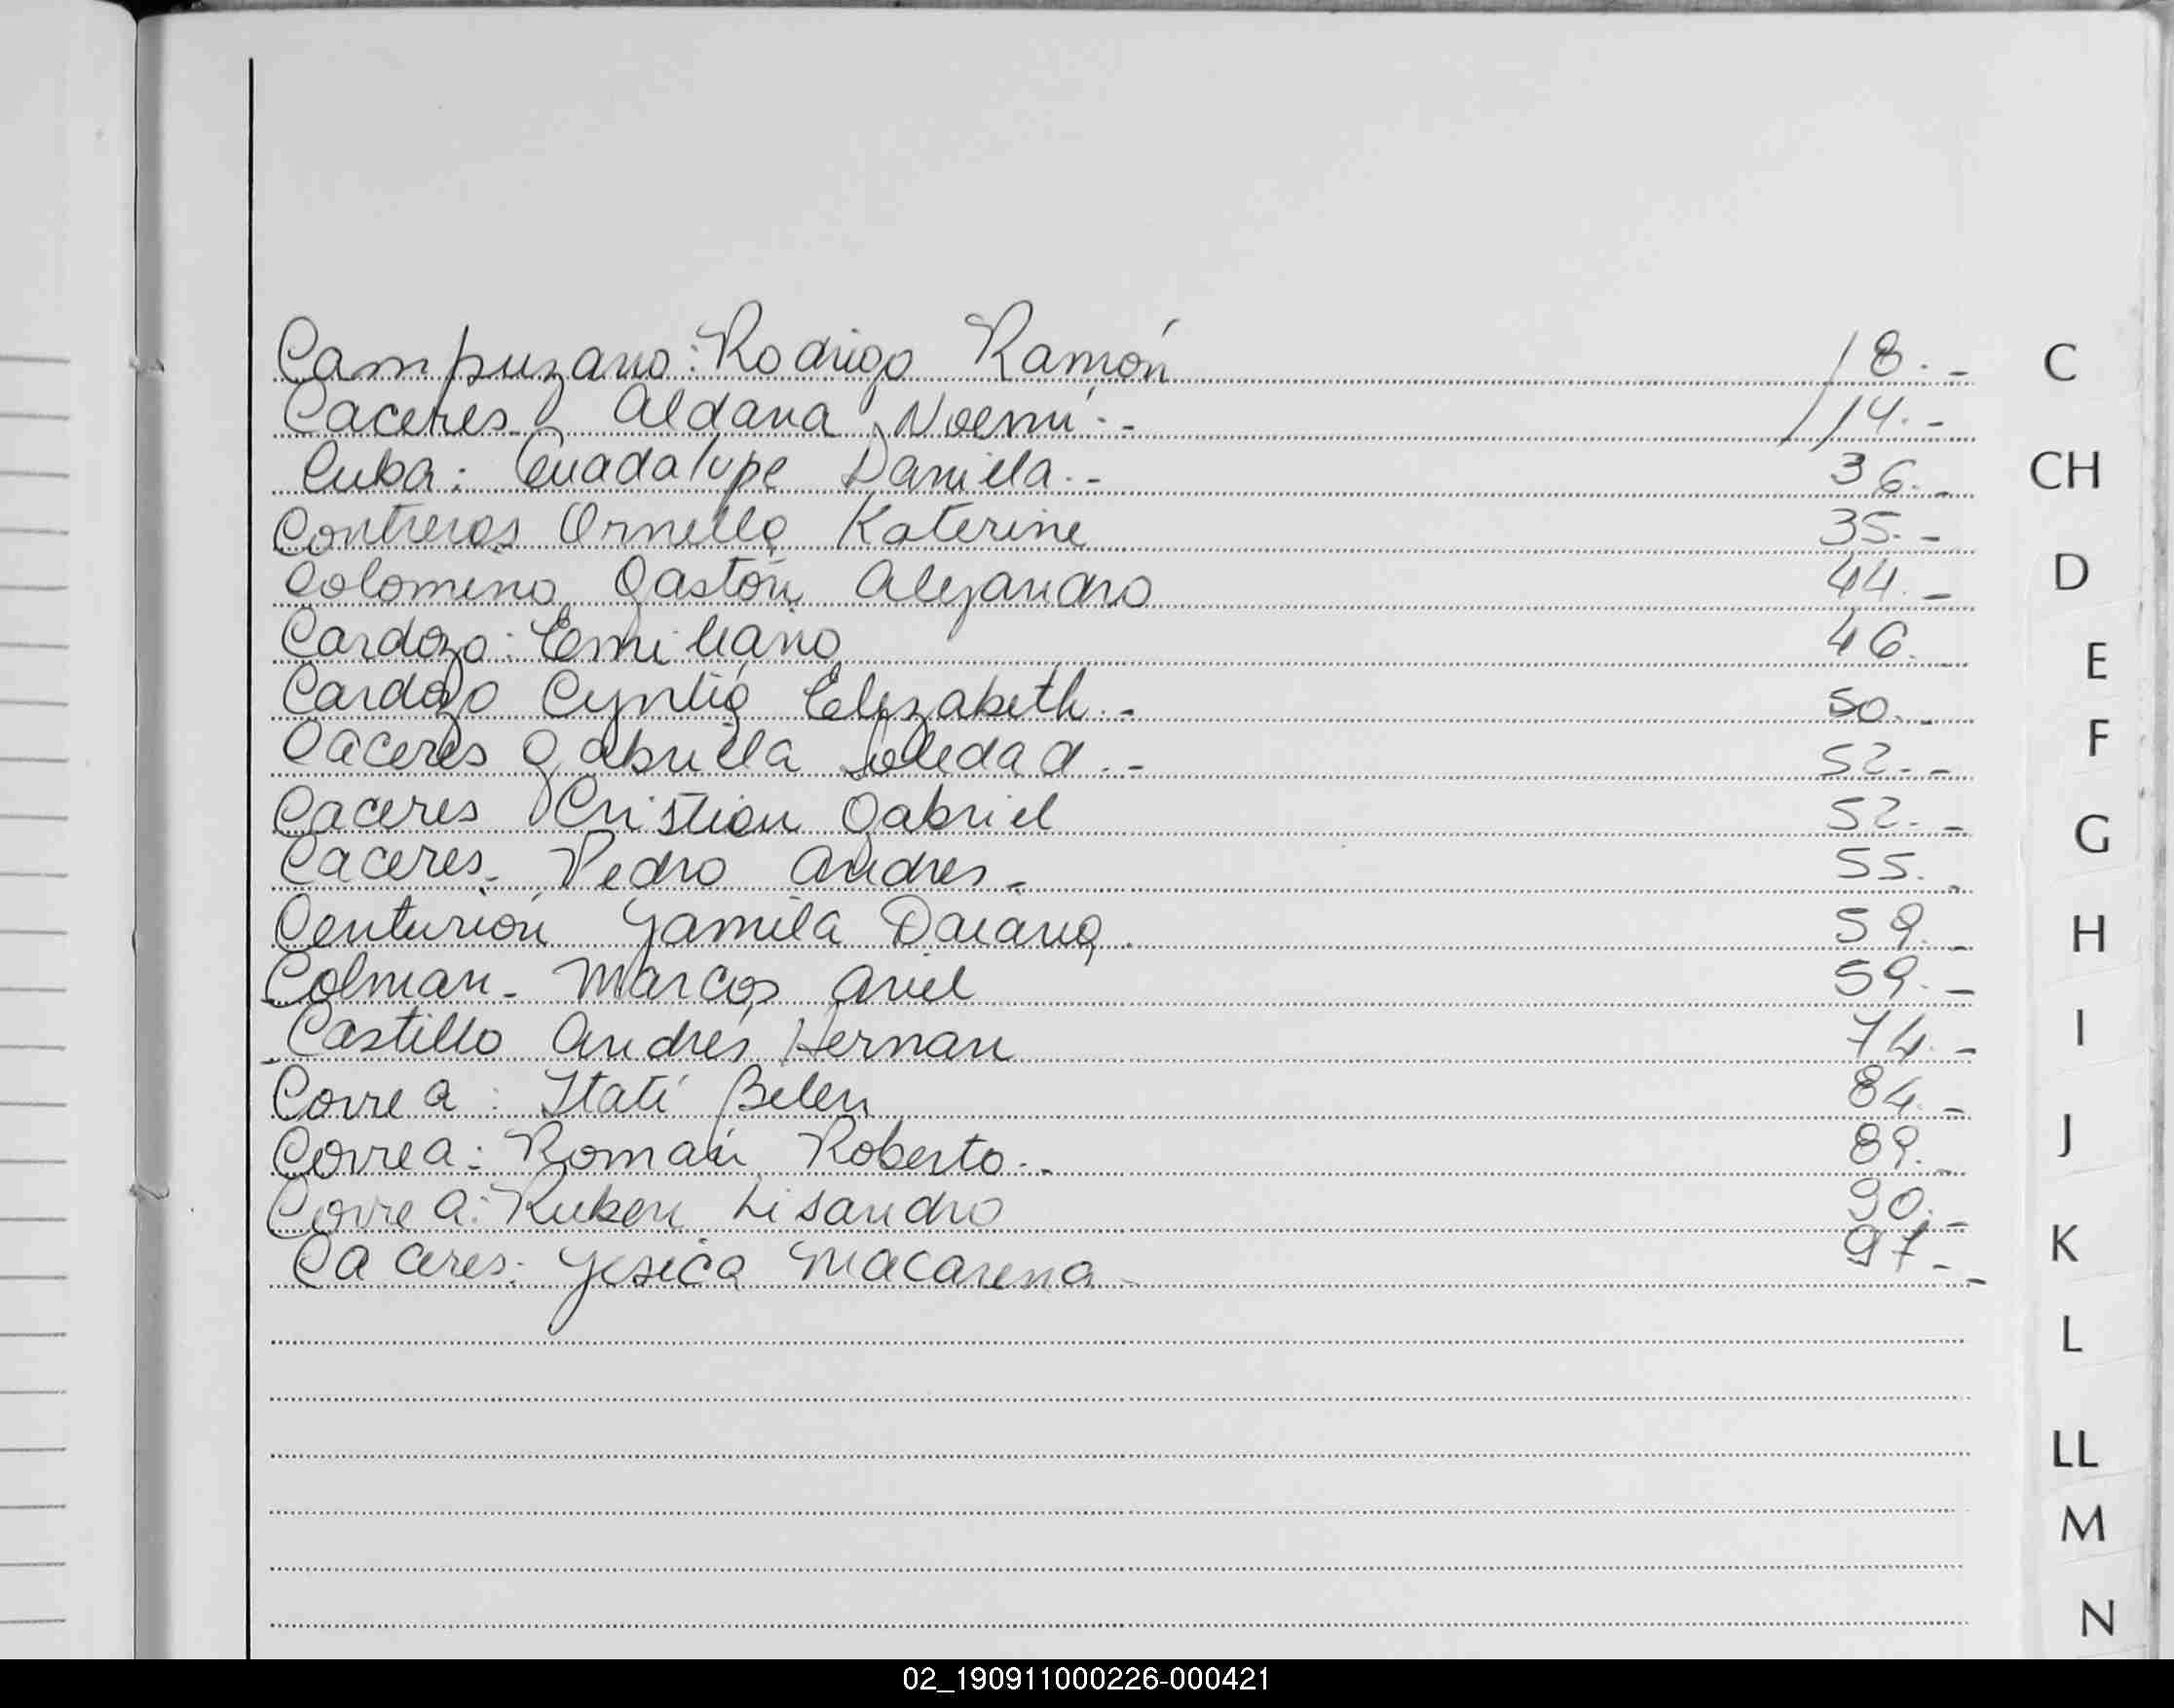 Campuzano: Rodrigo Ramón 18.- C
Caceres Aldana Noemi.- 14.-
Cuba: Guadalupe Daniela.- 36.- CH
Contreras Ornella Katerine 35.-
Colomino Gastón Alejandro 44.- D
Cardozo: Emiliano 46.- E
Cardozo Cyntia Elizabeth.- 50.-
Caceres Gabriela Soledad.- 52.- F
Caceres Cristian Gabriel 52.- G
Caceres.- Pedro Andres.- 55.-
Centurión Yamila Daiana. 59.- H
Colman- Marcos Ariel 59.-
Castillo Andrés Hernan 74.- I
Correa: Itatí Belen 84.-
Correa: Román Roberto.- 89.- J
Correa: Ruben Lisandro 90.-
Caceres: Yesica Macarena 97.- K
L
LL
M
N
02_190911000226-000421